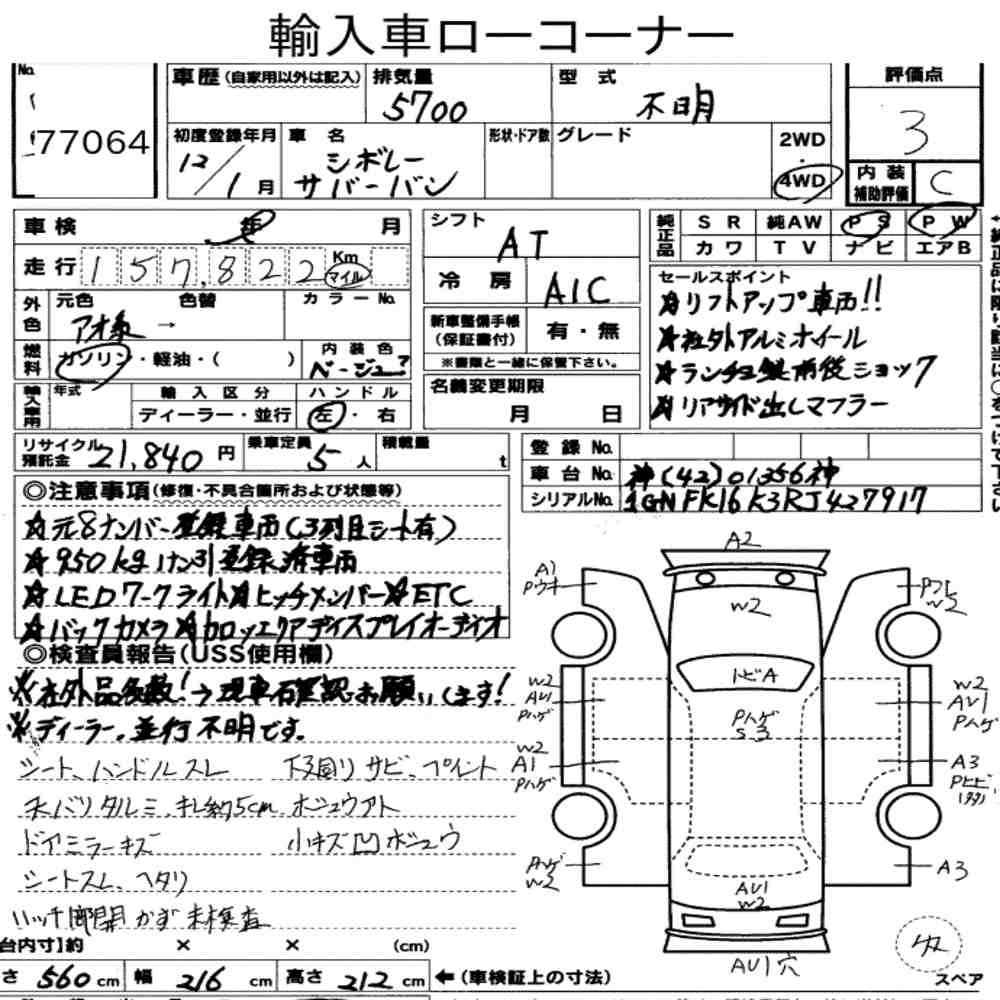 輸入車ローコーナー
No.
77064
車歴(自家用以外は記入)
排気量
5700
型式
不明
評価点
3
初度登録年月
12/1月
車名
シボレー
サバーバン
形状・ドア数
グレード
2WD
・
4WD
内装
補助評価
C
車検 年 月
走行 157,822
Km
マイル
外色
元色 色替
アオ系 →
カラーNo.
燃料
ガソリン・軽油・( )
内装色
ベージュ
輸入車用
年式
輸入区分
ディーラー・並行
ハンドル
左・右
シフト
AT
冷房
A/C
新車整備手帳
(保証書付)
有・無
※書類と一緒に保管下さい。
名義変更期限
月 日
純正品
SR 純AW PS PW
カワ TV ナビ エアB
セールスポイント
★リフトアップ車両!!
★社外アルミホイール
★ランチョ製前後ショック
★リアサイド出しマフラー
リサイクル
預託金
21,840円
乗車定員
5人
積載量
t
登録No.
車台No. 神(42)01356神
シリアルNo. 1GNFK16K3RJ427917
◎注意事項(修復・不具合箇所および状態等)
★元8ナンバー登録車両(3列目シート有)
★950kgけん引登録済車両
★LEDワークライト★ヒッチメンバー★ETC
★バックカメラ★カロッェリアディスプレイオーディオ
◎検査員報告(USS使用欄)
※社外品多数!→現車石確認お願いします!
※ディーラー,並行不明です。
シート、ハンドルスレ
下回りサビ、ペイント
天バリタルミ、キレ約5cm
ボジョウアト
ドアミラーキズ
小キズ凹ボジョウ
シートスレ、ヘタリ
ハッチ開かず未検査
A2
A1
Pウオ
W2
PフレW2
トビA
W2
AV1
Pハゲ
Pハゲ
S3
W2
AV1
Pハゲ
W2
A1
Pハゲ
A3
Pヒビ
Pハゲ
W2
A3
AV1
W2
AV1穴
スペア
台内寸】約 × × (cm)
さ 560cm 幅 216cm 高さ 212cm ←(車検証上の寸法)